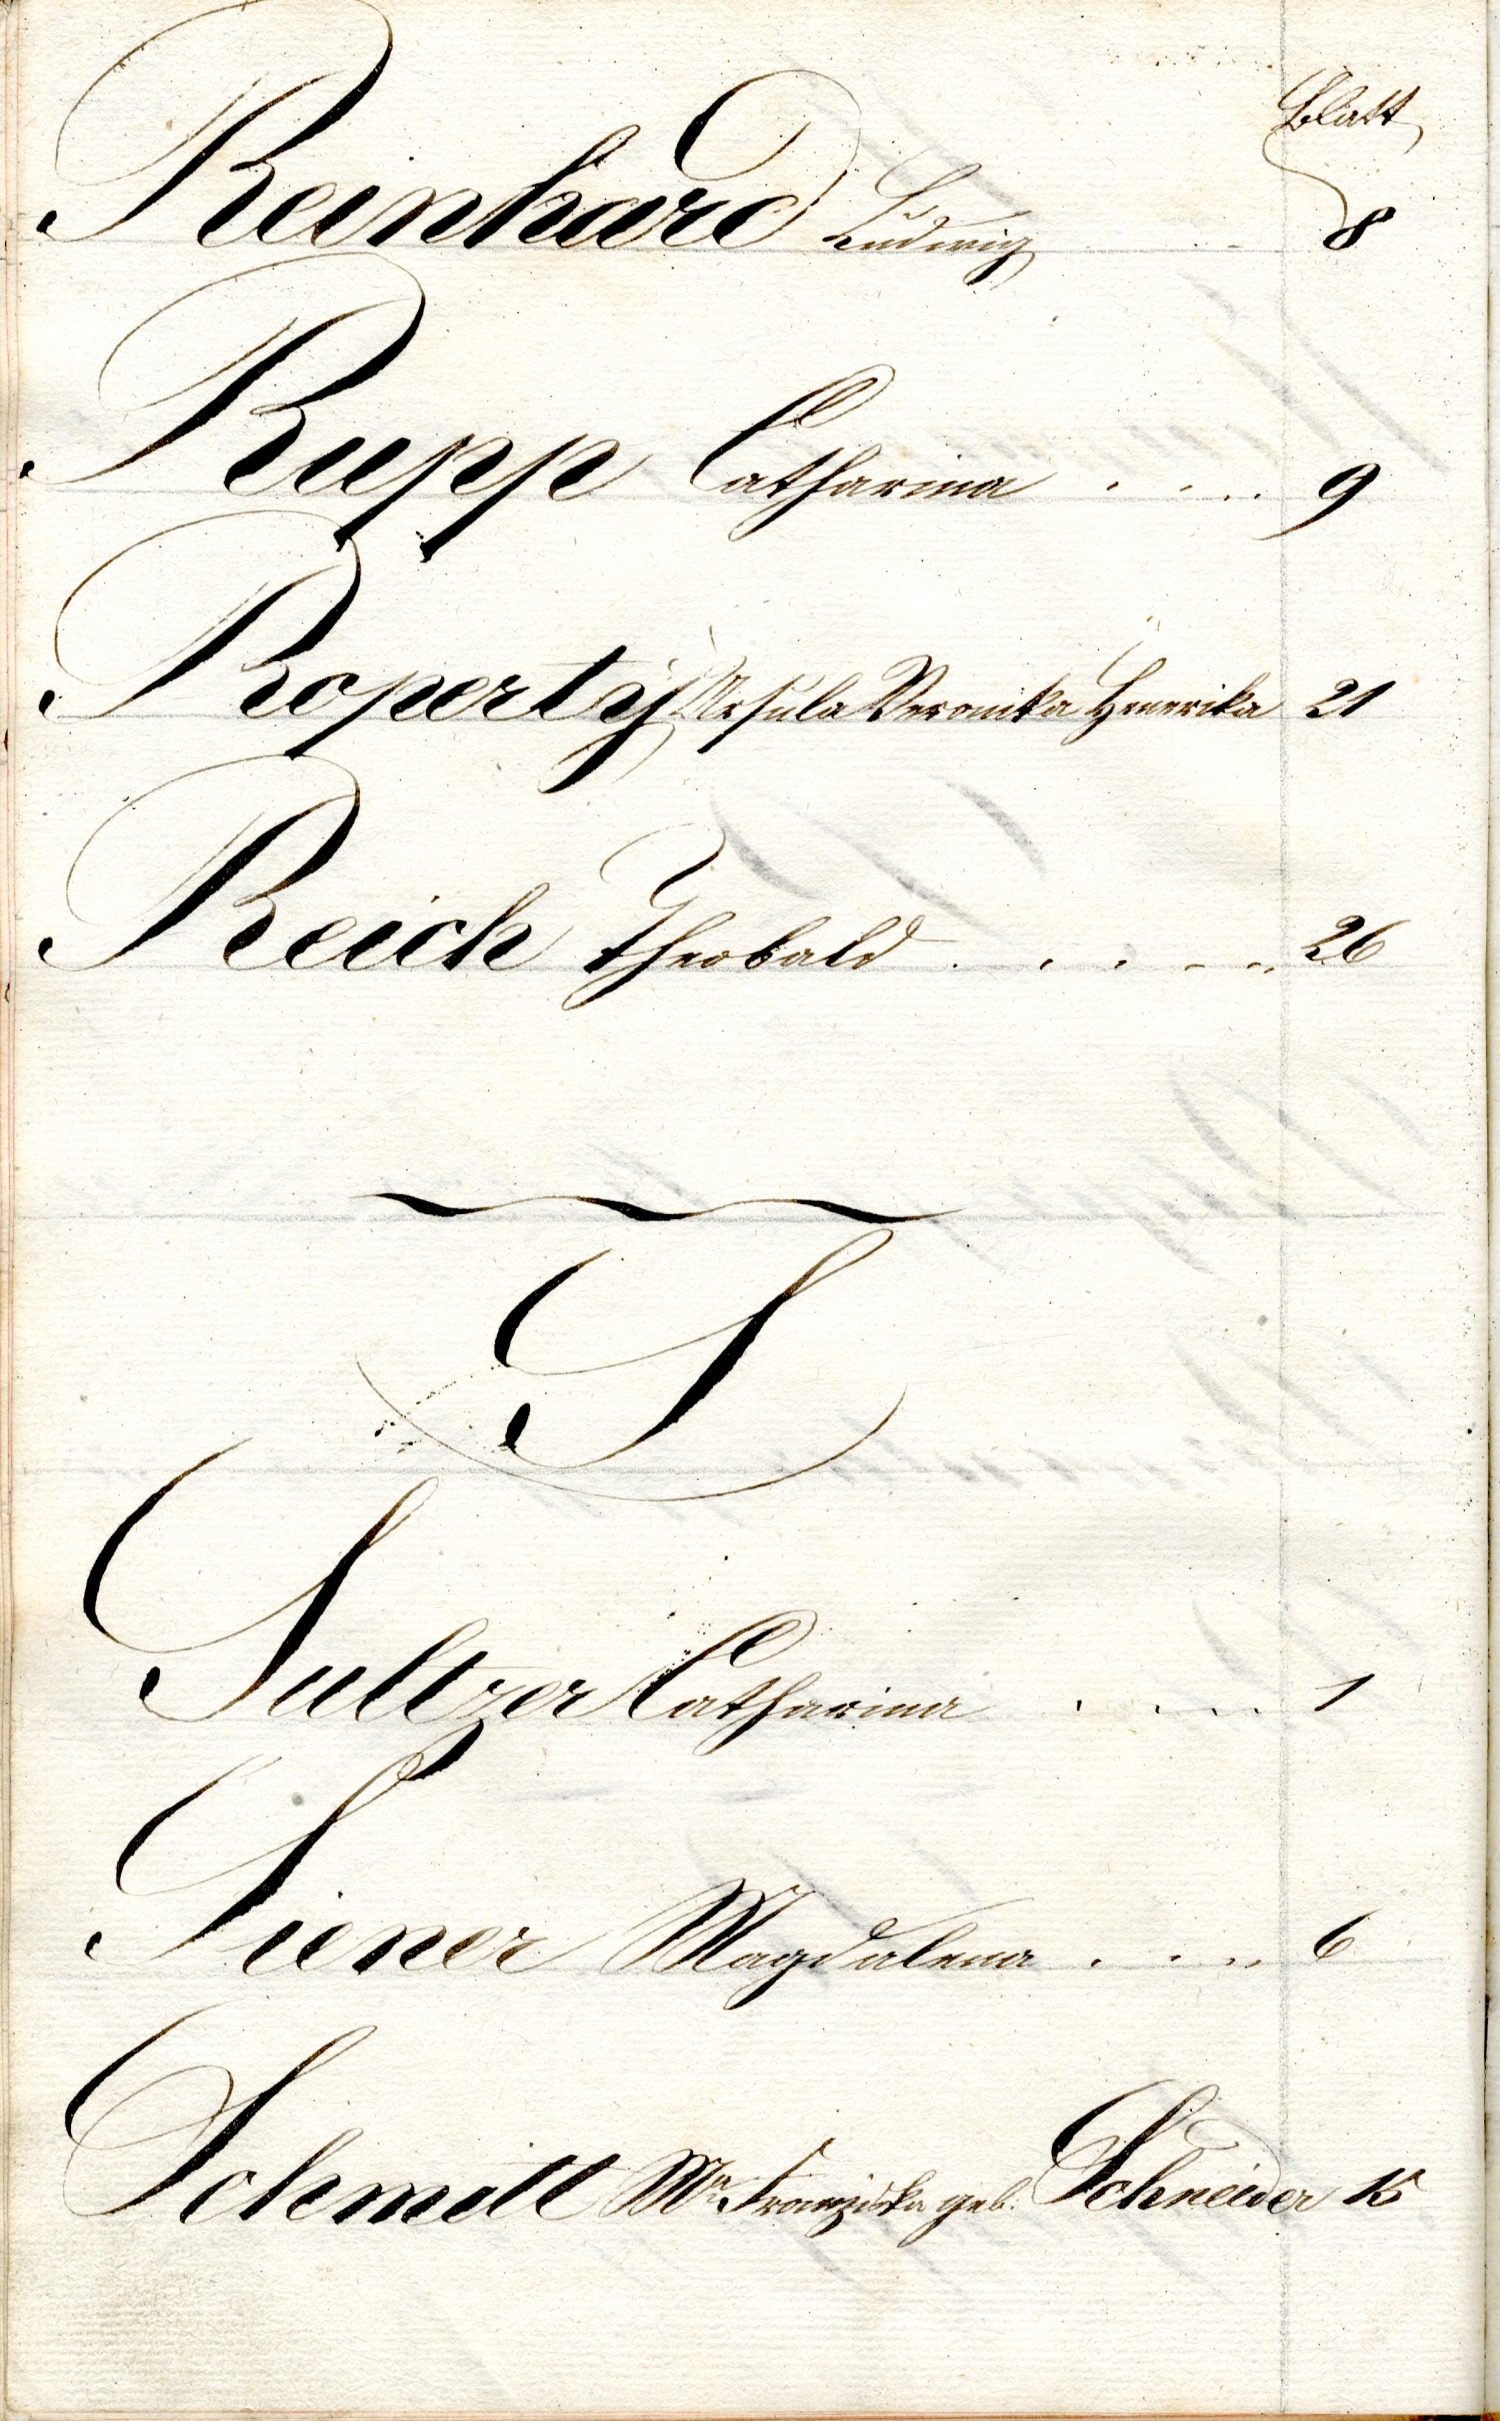 Blatt
Reinhard Ludwig . . 8
Rupp Catharina . . . . 9
Roperty Ursula Veronika Henerika 21
Reich Theobald . . . . . . 26
S
Sultzer Catharina . . . . . 1
Siener Magdalena . . . . 6
Schmitt Mª Franziska geb. Schneider 15